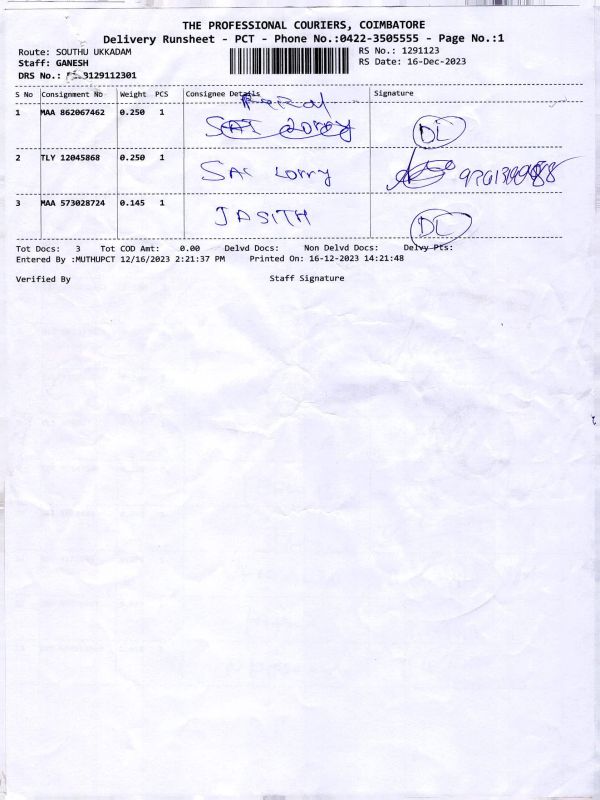 THE PROFESSIONAL COURIERS, COIMBATORE
Delivery Runsheet - PCT - Phone No.:0422-3505555 - Page No.:1
Route: SOUTHU UKKADAM
RS No.: 1291123
Staff: GANESH
RS Date: 16-Dec-2023
DRS No.: 3129112301
S No Consignment No Weight PCS Consignee Details Signature
1 MAA 862067462 0.250 1 SAI Lorry DL
2 TLY 12045868 0.250 1 SAI Lorry
3 MAA 573028724 0.145 1 JASITH DL
Tot Docs: 3 Tot COD Amt: 0.00 Delvd Docs: Non Delvd Docs: Delvy Pts:
Entered By :MUTHUPCT 12/16/2023 2:21:37 PM Printed On: 16-12-2023 14:21:48
Verified By Staff Signature